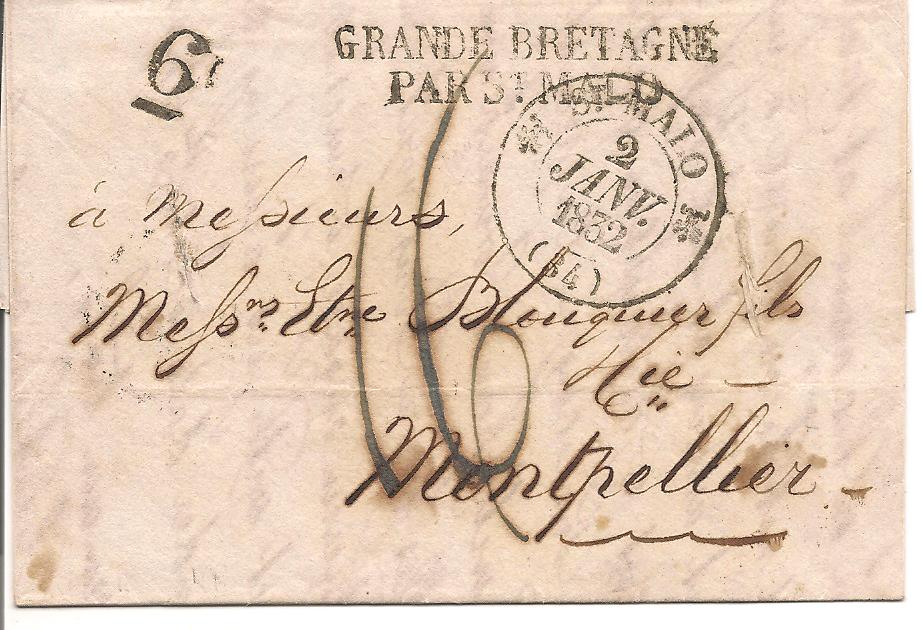 6
GRANDE BRETAGNE
PAR ST. MALO
ST. MALO
2
JANV.
1832
(34)
16
à Messieurs,
Messrs. Etne Blouquier fils
& Cie
Montpellier